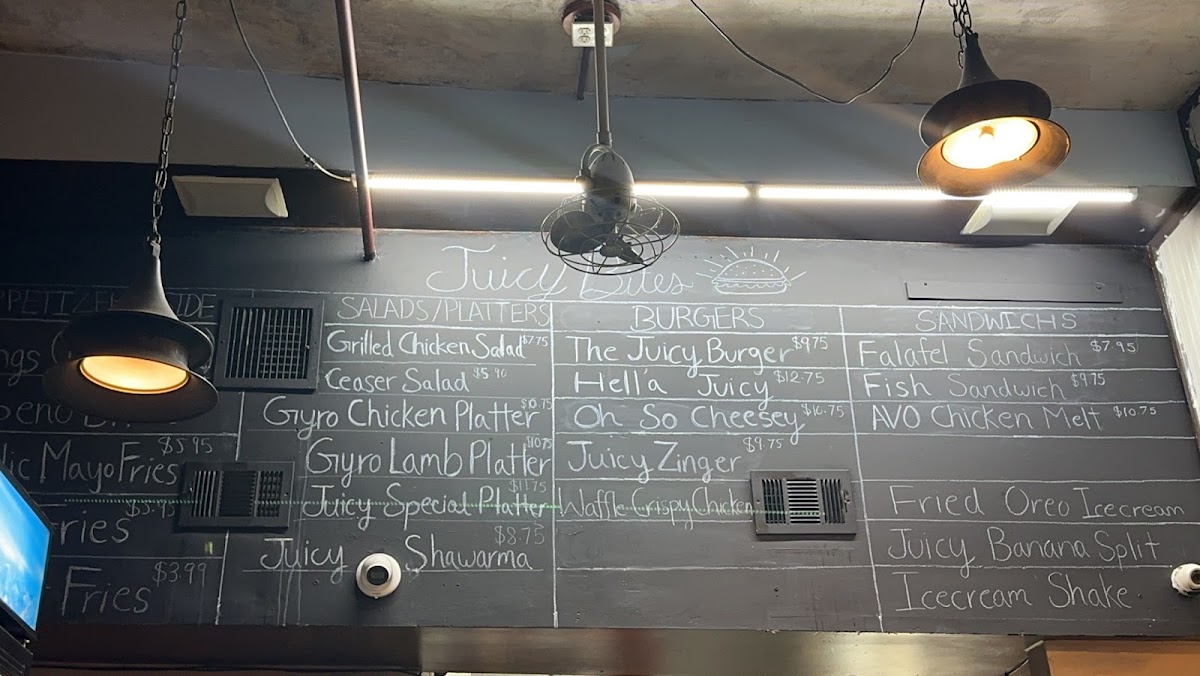 Juicy Bites
SALADS/PLATTERS
Grilled Chicken Salad $7.75
Ceaser Salad $5.90
Gyro Chicken Platter $10.75
Gyro Lamb Platter $10.75
Juicy Special Platter $11.75
Juicy Shawarma $8.75
BURGERS
The Juicy Burger $9.75
Hell'a Juicy $12.75
Oh So Cheesey $10.75
Juicy Zinger $9.75
Waffle Crispy Chicken
SANDWICHS
Falafel Sandwich $7.95
Fish Sandwich $9.75
AVO Chicken Melt $10.75
Fried Oreo Icecream
Juicy Banana Split
Icecream Shake
Mayo Fries $5.95
$5.95
Fries $3.99